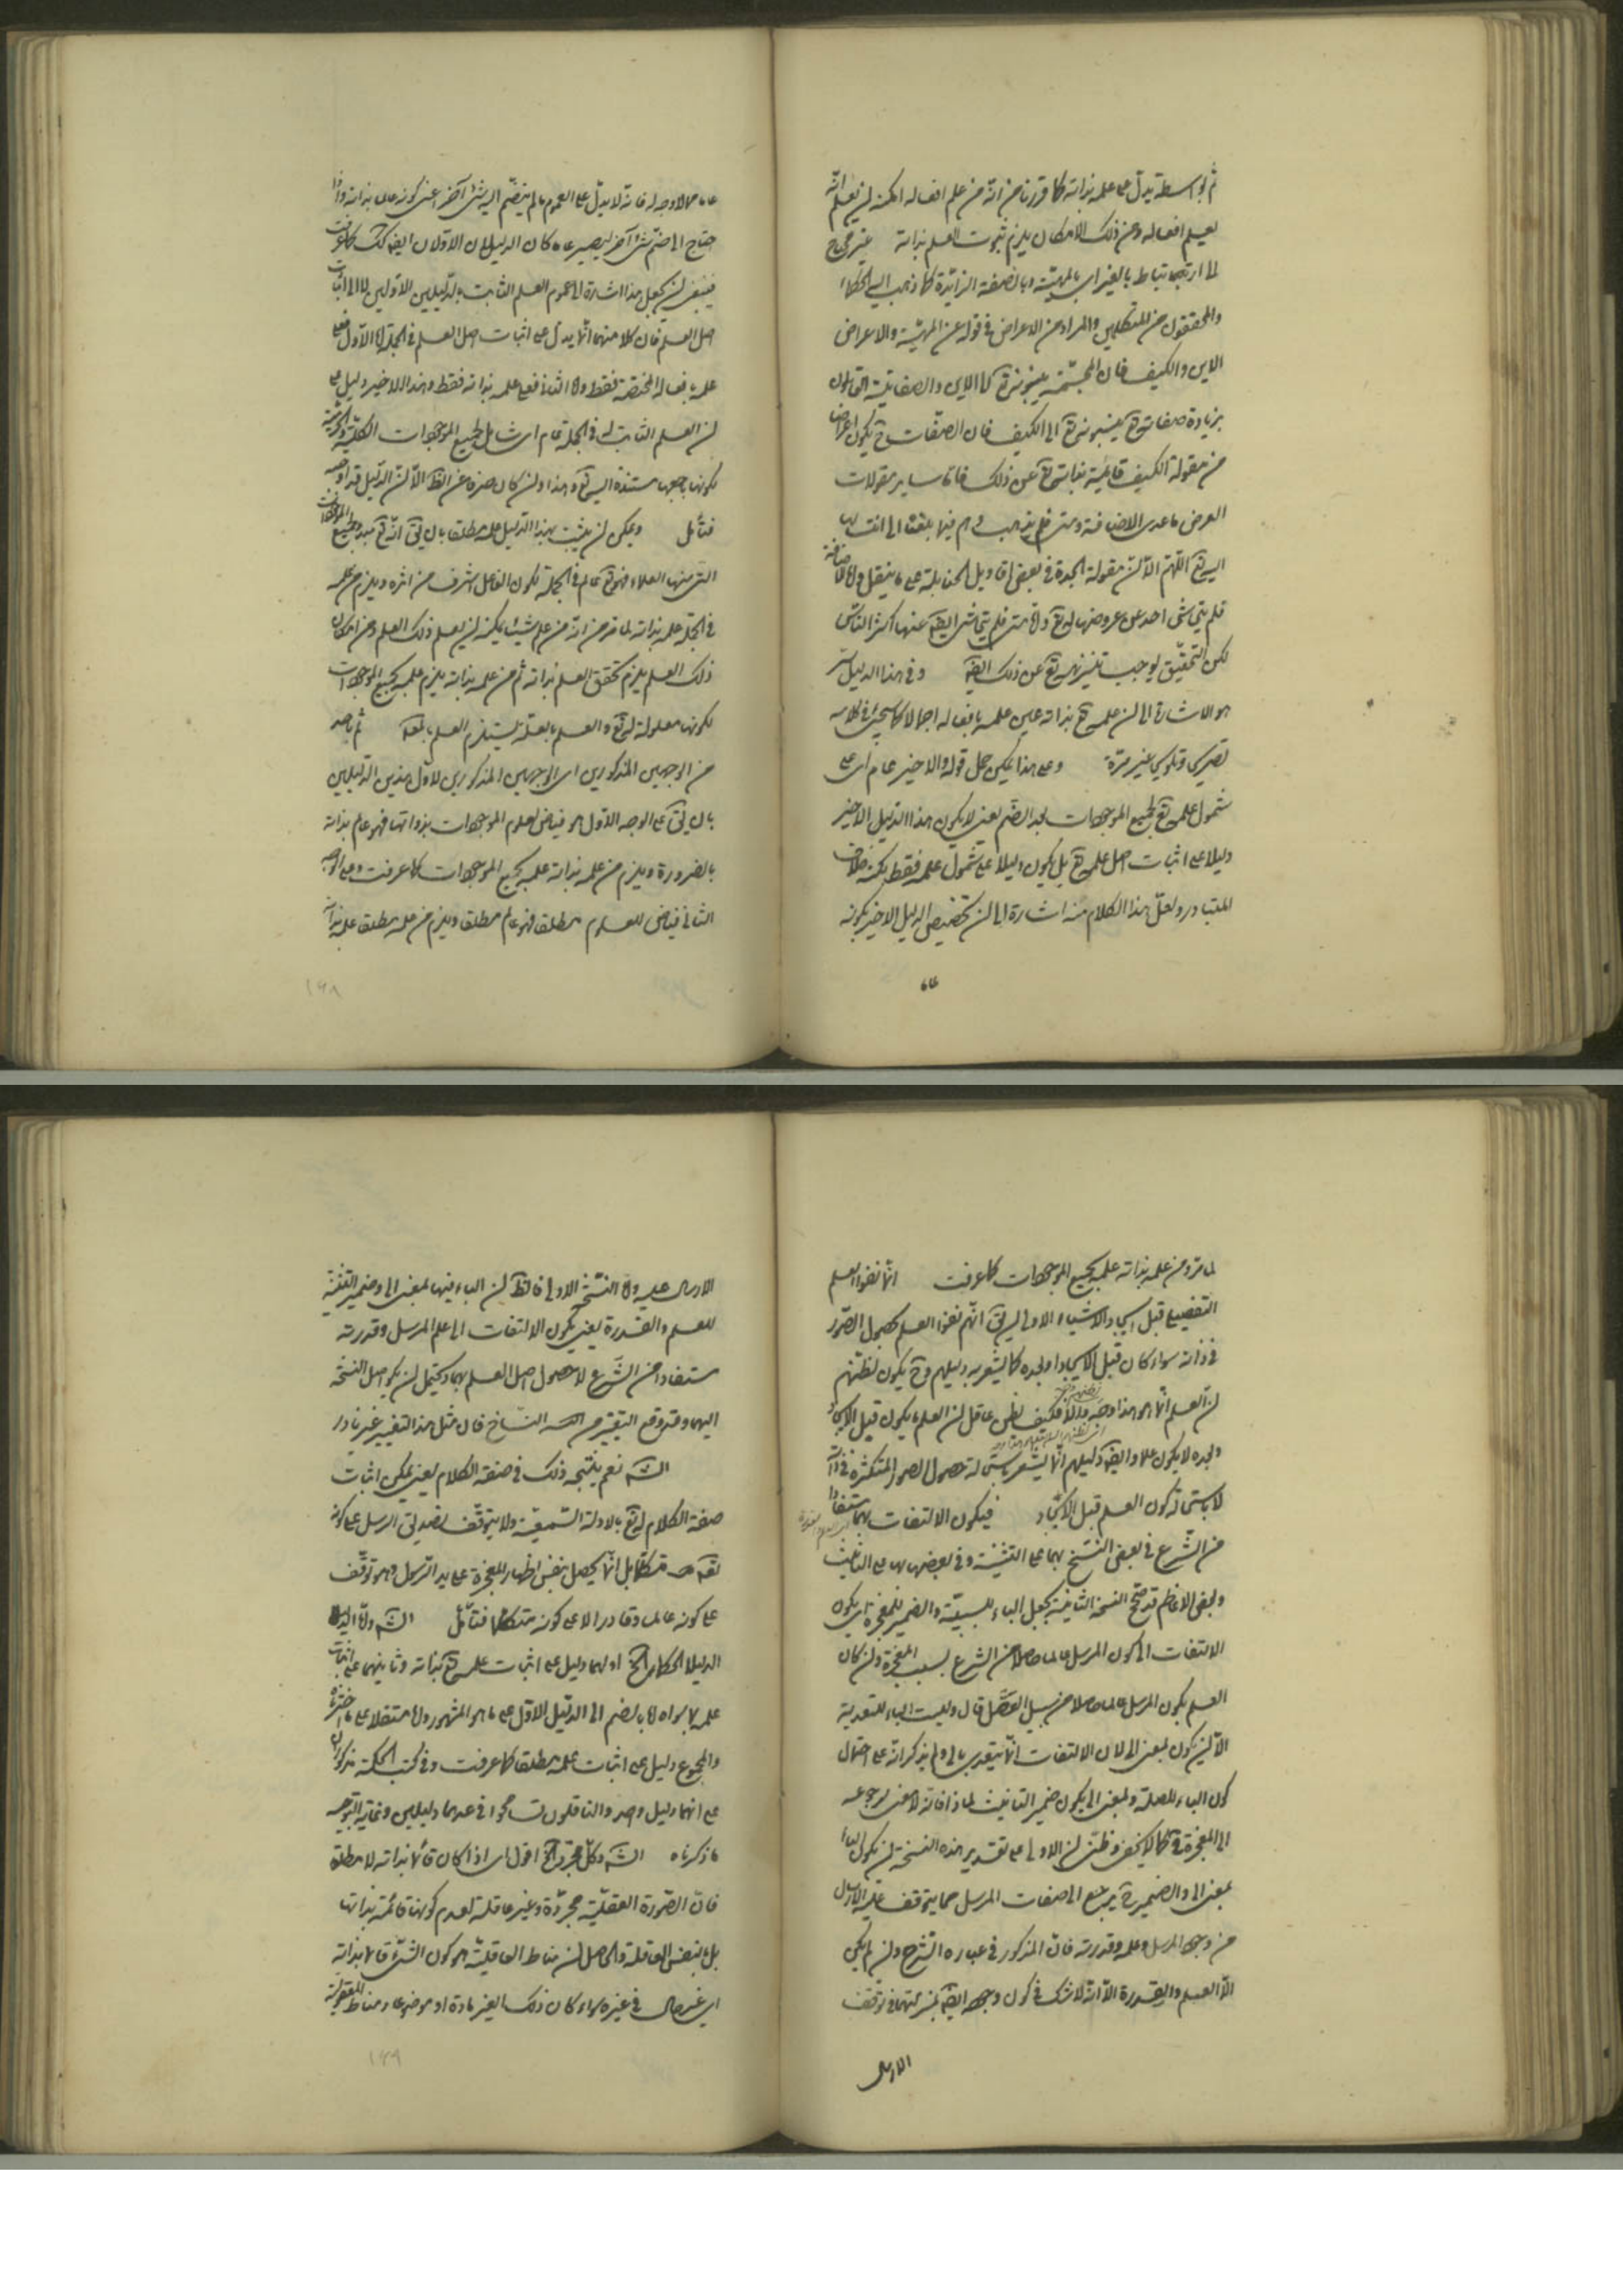 ثم بواسطته يدل على علمه بذاته كما قررنا من انّه من علم افعاله امكنه ان يعلم انّه
يعلم افعاله ومن ذلك الامكان يلزم ثبوت العلم بذاته غير محتاج
بالغير اى بالمهيّة وبالصفة الزائدة كما ذهب اليه الحكماء
والمحققون من المتكلمين والمراد من الاعراض فى قوله عن المهيّة والاعراض
الاين والكيف فان المجسّمة ينسبونه تع الى الاين والصفاتية القائلون
بزيادة صفاته تع ينسبونه تع الى الكيف فان الصفات ح يكون اعراضا
من مقولة الكيف قائمة بذاته تع عن ذلك فاما ساير مقولات
العرض ما عدى الاضافة ومتى فلم يذهب وهم فيما بلغنا الى انتسابها
اليه تع اللهم الّا ان مقولة الجدة فى بعض اقاويل الحنابلة على ما ينقل واما الاضافة
فلم يتحاش احد عن عروضها له تع واما متى فلم يتحاش ايضا عنها اكثر الناس
لكن التحقيق يوجب تنزيهه تع عن ذلك ايضا وفى هذا الدليل سر
هو الاشارة الى ان علمه تع بذاته عين علمه بافعاله اجمالا كما سيجئ فى كلامه
تصريحا وتلويحا غير مرة وعلى هذا يمكن حمل قوله والاخير عام اى على
شمول علمه تع لجميع الموجودات بعد الضم يعنى لا يكون هذا الدليل الاخير
دليلا على اثبات اصل علمه تع بل يكون دليلا على شمول علمه فقط لكنه خلاف
المتبادر ولعل هذا الكلام منه اشارة الى ان تخصيص الدليل الاخير بكونه
عاما
عاما مما لا وجه له فانه لا يدل على العموم ما لم ينضم اليه شئ آخر اعنى كونه عالما بذاته واذا
احتاج الى ضم شئ آخر ليصير عاما كان الدليلان الاولان ايضا كك كما عرفت
فينبغى ان يجعل هذا اشارة الى عموم العلم الثابت بالدليلين الاولين لا الى اثبات
اصل العلم فان كلا منهما انما يدل على اثبات اصل العلم فى الجملة اما الاول فعلى
علمه بافعاله المختصة فقط واما الثانى فعلى علمه بذاته فقط وهذا الاخير دليل على
ان العلم الثابت له فى الجملة عام اى شامل لجميع الموجودات الكلية والجزئية
لكونها باجمعها مستندة اليه تع وهذا وان كان صرفا عن الظ الّا ان الدليل قد اوجبه
فتأمل ويمكن ان يثبت بهذا الدليل علمه مطلقا بان يق انّه تع مبدء لجميع الموجودات
التى منها العلماء فهو تع عالم فى الجملة لكون الفاعل اشرف من اثره ويلزم من علمه
فى الجملة علمه بذاته لما مر من انه من علم شيئا يمكنه ان يعلم ذلك العلم ومن امكان
ذلك العلم يلزم تحقق العلم بذاته ثم من علمه بذاته يلزم علمه بجميع الموجودات
لكونها معلولة له تع والعلم بالعلة يستلزم العلم بالمعلول ثم باحد
من الوجهين المذكورين اى الوجهين المذكورين لاول هذين الدليلين
بان يق على الوجه الاول هو فياض لعلوم الموجودات بذواتها فهو عالم بذاته
بالضرورة ويلزم من علمه بذاته علمه بجميع الموجودات كما عرفت وعلى الوجه
الثانى فياض للعلوم مطلقا فهو عالم مطلقا ويلزم من علمه مطلقا علمه بذاته
١٦٨
لما مرّ ومن علمه بذاته علمه بجميع الموجودات كما عرفت انما نفوا العلم
التفصيلى قبل ايجاد الاشياء الاولى ان يق انهم نفوا العلم بحصول الصور
فى ذاته سواء كان قبل الايجاد او بعده كما يشعر به دليلهم وح يكون لظنهم
ان العلم انما هو هذا وجه والا فكيف يظن عاقل ان العلم ما يكون قبل الايجاد
وبعده لا يكون علما وايضا دليلهم انما يشعر باستحالة حصول الصور المتكثرة فى ذاته
لا باستحالة كون العلم قبل الايجاد فيكون الالتفات بهما مستفادا
من الشرع فى بعض النسخ بهما على التثنية وفى بعضها بها على التانيث
وبعض الاعاظم قد صحح النسخة الثانية بجعل الباء للسببية والضمير للمعجزة اى يكون
الالتفات الى كون المرسل عالما حاصلا من الشرع بسبب المعجزة وان كان
العلم بكون المرسل عالما حاصلا من سبيل العقل قال وليست الباء للتعدية
الّا ان يكون بمعنى الى لان الالتفات انما يتعدى بالى ولم يذكر انه على احتمال
كون الباء للصلة وبمعنى الى يكون ضمير التانيث لماذا فانه لا معنى لرجوعه
الى المعجزة ح كما لا يخفى وظنى ان الاولى على تقدير هذه النسخة ان يكون الباء
بمعنى الى والضمير ح يرجع الى صفات المرسل مما يتوقف عليه الارسال
من وجود المرسل وعلمه وقدرته فان المذكور فى عبارة الشرح وان لم يكن
الّا العلم والقدرة الّا انه لا شك فى كون وجوده ايضا بمنزلتهما فى توقف
الارسال
الارسال عليه واما النسخة الاولى فالظ ان الباء فيها بمعنى الى وضمير التثنية
للعلم والقدرة يعنى يكون الالتفات الى علم المرسل وقدرته
مستفادا من الشرع لا حصول اصل العلم بهما ويحتمل ان يكون اصل النسخة
اليهما وقد وقع التغيير من النساخ فان مثل هذا التغيير غير نادر
الش نعم يتجه ذلك فى صفة الكلام يعنى يمكن اثبات
صفة الكلام له تع بالادلة السمعية ولا يتوقف تصديق الرسل على كونه
متكلما بل انما يحصل بنفس اظهار المعجزة على يد الرسول وهو توقف
على كونه عالما وقادرا لا على كونه متكلما فتأمل الش
الدليلا الحكماء الخ اولهما دليل على اثبات علمه تع بذاته وثانيهما على اثبات
علمه بما سواه اما بالضم الى الدليل الاول على ما هو المشهور واما مستقلا على ما اخترناه
والمجموع دليل على اثبات علمه مطلقا كما عرفت وفى كتب الحكمة مذكور
على انهما دليل واحد والناقلون تسامحوا فى عدهما دليلين وغاية التوجيه
ما ذكرناه الش وكل مجرد الخ اقول اى اذا كان قائما بذاته لا مطلقا
فان الصورة العقلية مجردة وغير عاقلة لعدم كونها قائمة بذاتها
بل بالنفس العاقلة والحاصل ان مناط العاقلية هو كون الشئ قائما بذاته
اى غير حال فى غيره سواء كان ذلك الغير مادة او موضوعا ومناط المعقولية
١٦٩